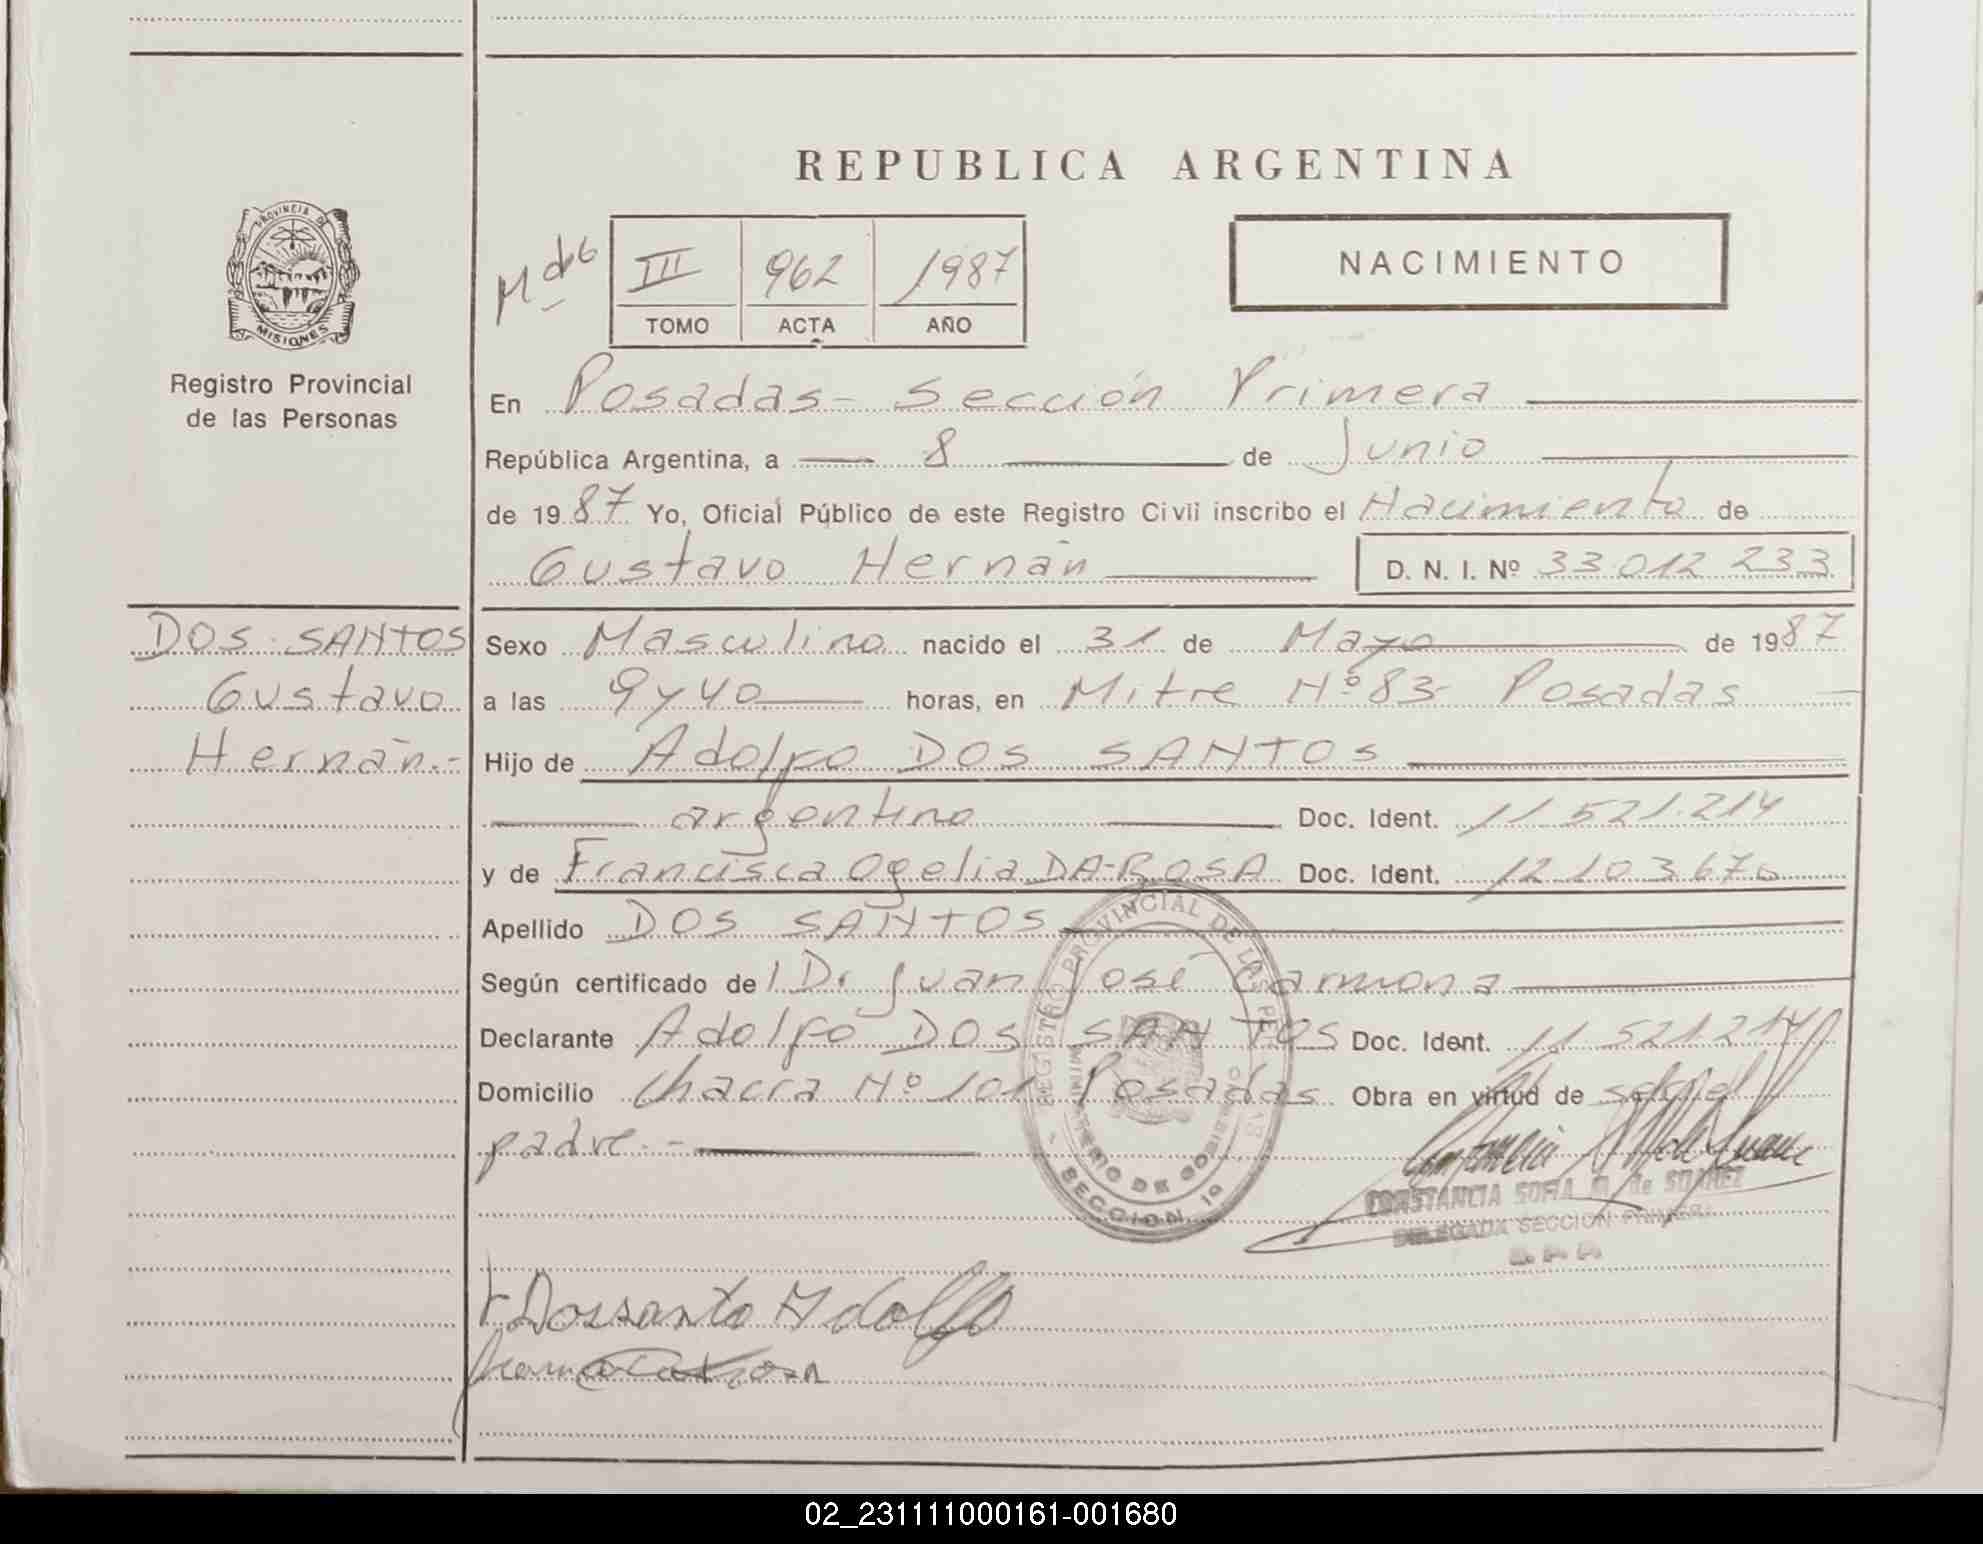 REPUBLICA ARGENTINA
PROVINCIA DE
MISIONES
Registro Provincial
de las Personas
III 962 1987
TOMO ACTA AÑO
NACIMIENTO
En Posadas - Sección Primera
República Argentina, a 8 de Junio
de 1987 Yo, Oficial Público de este Registro Civil inscribo el Nacimiento de
Gustavo Hernán D. N. I. Nº 33 012 233
DOS SANTOS
Gustavo
Hernán.-
Sexo Masculino nacido el 31 de Mayo de 1987
a las 9 y 40 horas, en Mitre Nº 83- Posadas
Hijo de Adolfo DOS SANTOS
argentino Doc. Ident. 11 521.214
y de Francisca Ogelia DA-ROSA Doc. Ident. 12 103 670
Apellido DOS SANTOS
Según certificado de Dr Juan José Carmona
Declarante Adolfo DOS SANTOS Doc. Ident. 11 521 214
Domicilio Chacra Nº 101 Posadas Obra en virtud de
padre.-
REGISTRO PROVINCIAL DE LAS PERSONAS
MINISTERIO DE GOBIERNO
SECCION 1ª
CONSTANCIA SOFIA M. de SUAREZ
DELEGADA SECCION PRIMERA
R. P. P.
Dossanto Adolfo
02_231111000161-001680